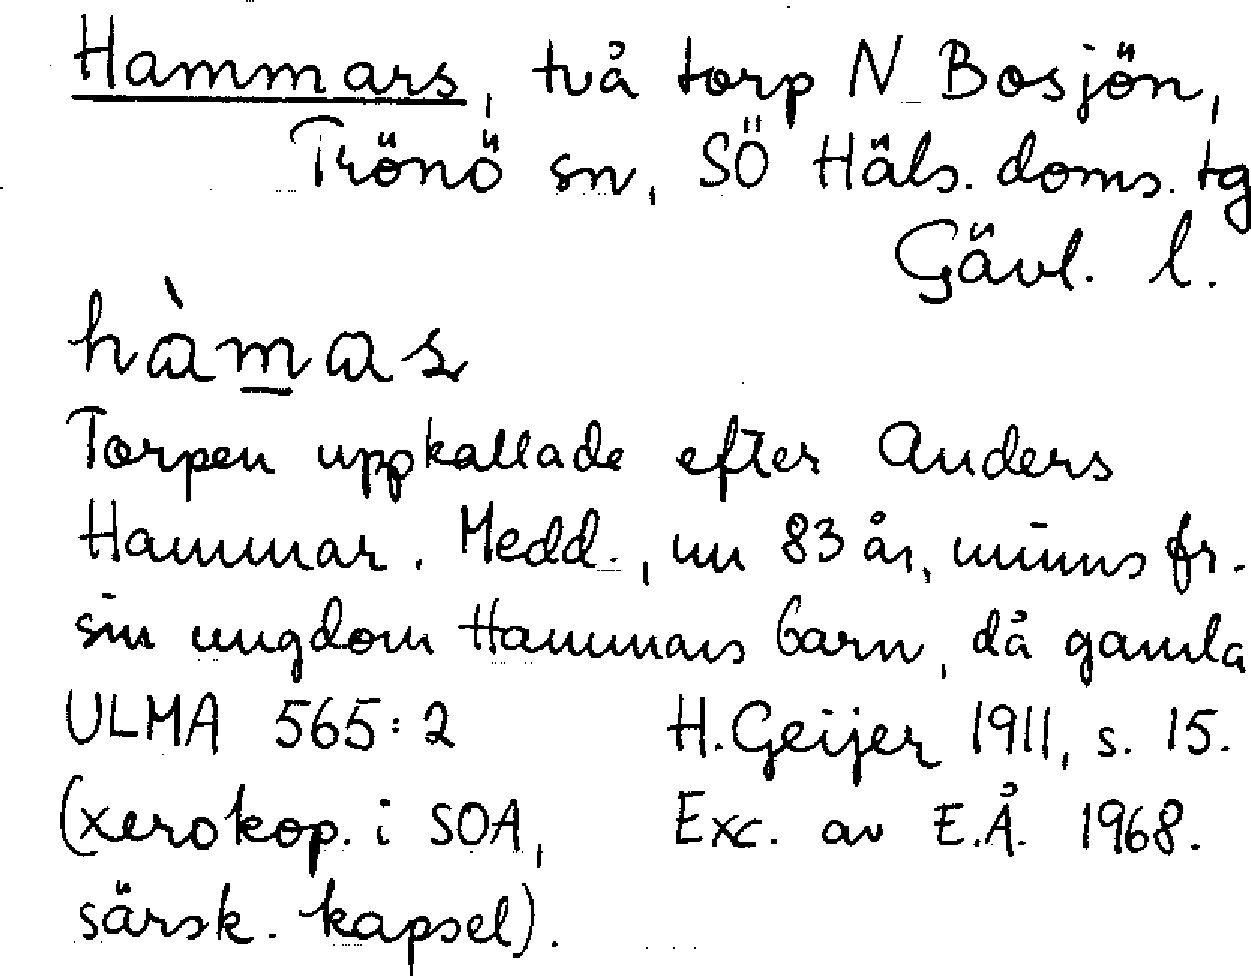 Hammars, två torp N Bosjön,
Trönö sn, SÖ Häls. doms. tg
Gävl. l.
hàmas
Torpen uppkallade efter Anders
Hammar. Medd., nu 83 år, minns fr.
sin ungdom Hammars barn, då gamla
ULMA 565:2 H. Geijer 1911, s. 15.
(xerokop. i SOA, Exc. av E.Å. 1968.
särsk. kapsel).